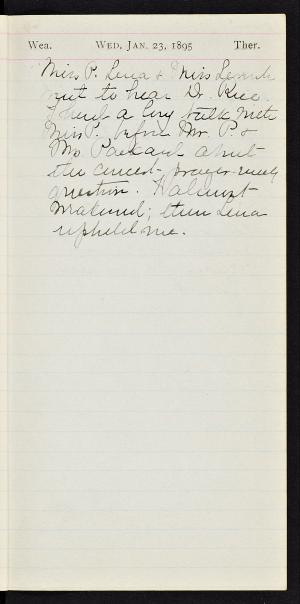 Wea. WED. JAN. 23, 1895 Ther.
Miss P. Lena & Miss
went to hear D. Rice.
I had a long talk with
Miss P. before Mr. P. &
Mrs Packard about
the concert-prayer-meeting
question. Halmost
weakened; then Lena
upheld me.